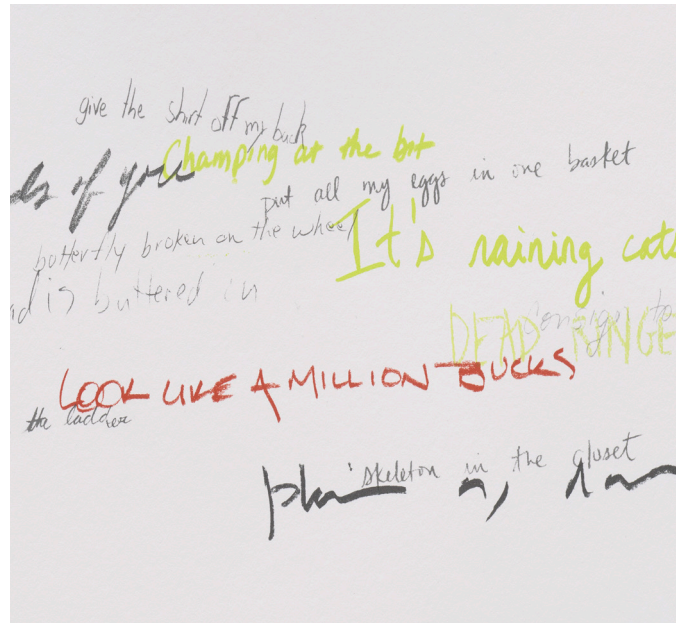 give the shirt off my back
of you
Champing at the bit
put all my eggs in one basket
butterfly broken on the wheel
It's raining cats
is buttered in
consign to
DEAD RINGE
LOOK LIKE A MILLION BUCKS
the ladder
skeleton in the closet